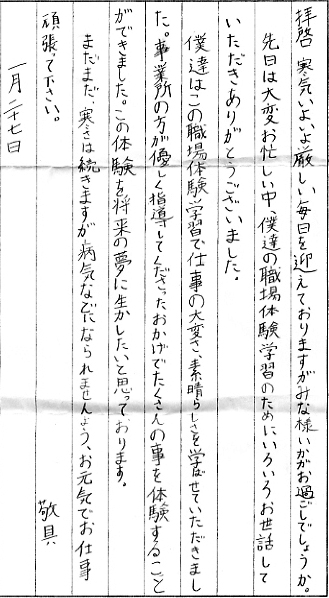 拝啓 寒気いよいよ厳しい毎日を迎えておりますがみな様いかがお過ごしでしょうか。
先日は大変お忙しい中、僕達の職場体験学習のためにいろいろお世話して
いただきありがとうございました。
僕達はこの職場体験学習で仕事の大変さ、素晴らしさを学ばせていただきまし
た。事業所の方が優しく指導してくださったおかげでたくさんの事を体験すること
ができました。この体験を将来の夢に生かしたいと思っております。
まだまだ、寒さは続きますが病気などになられませんよう、お元気でお仕事
頑張って下さい。
敬具
一月二十七日